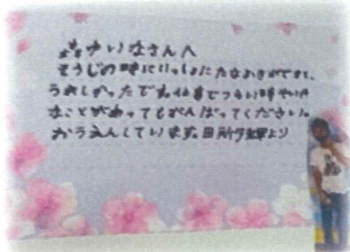 まゆいなさんへ
そうじの時にいっしょにたなおきができて、
うれしかったです。仕事でつらい時やいや
なことがあってもがんばってください。
おうえんしています。田所夕輝より